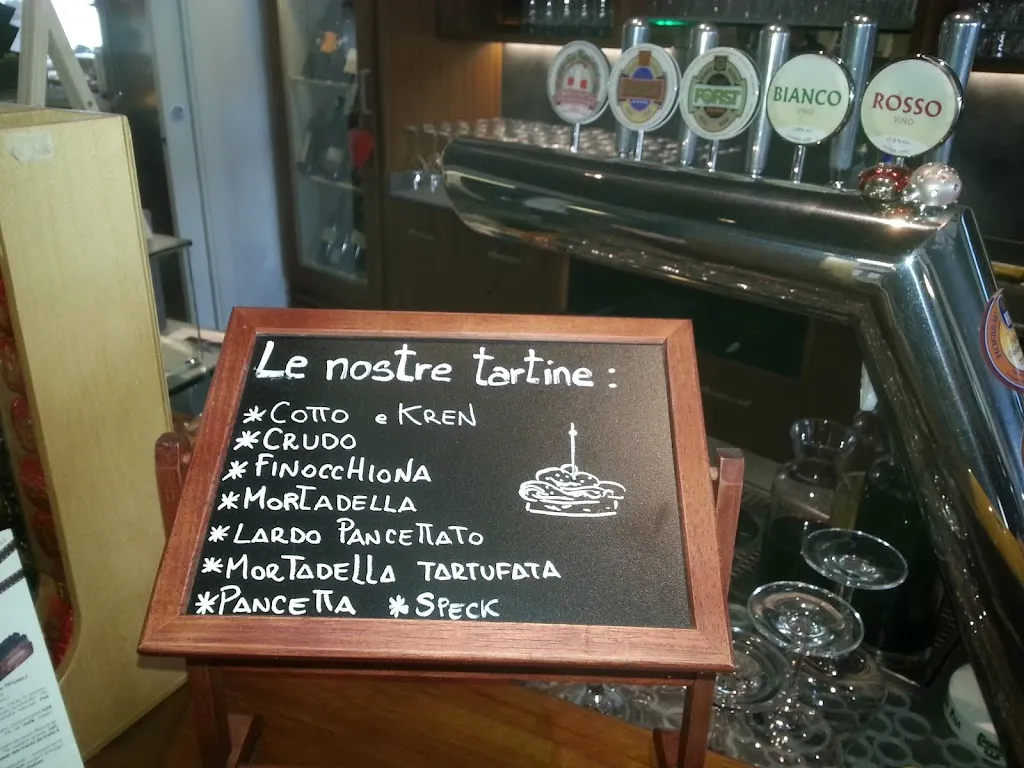 FORST
BIANCO
VINO
ROSSO
VINO
Le nostre tartine :
*COTTO e KREN
*CRUDO
*FINOCCHIONA
*MORTADELLA
*LARDO PANCETTATO
*MORTADELLA TARTUFATA
*PANCETTA *SPECK